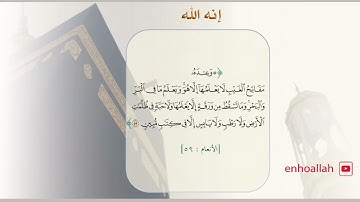 إنه الله
﴿۞وَعِندَهُۥ
مَفَاتِحُ ٱلْغَيْبِ لَا يَعْلَمُهَآ إِلَّا هُوَ ۚ وَيَعْلَمُ مَا فِى ٱلْبَرِّ
وَٱلْبَحْرِ ۚ وَمَا تَسْقُطُ مِن وَرَقَةٍ إِلَّا يَعْلَمُهَا وَلَا حَبَّةٍ فِى ظُلُمَٰتِ
ٱلْأَرْضِ وَلَا رَطْبٍ وَلَا يَابِسٍ إِلَّا فِى كِتَٰبٍ مُّبِينٍ ٥٩﴾
[الأنعام : ٥٩]
enhoallah